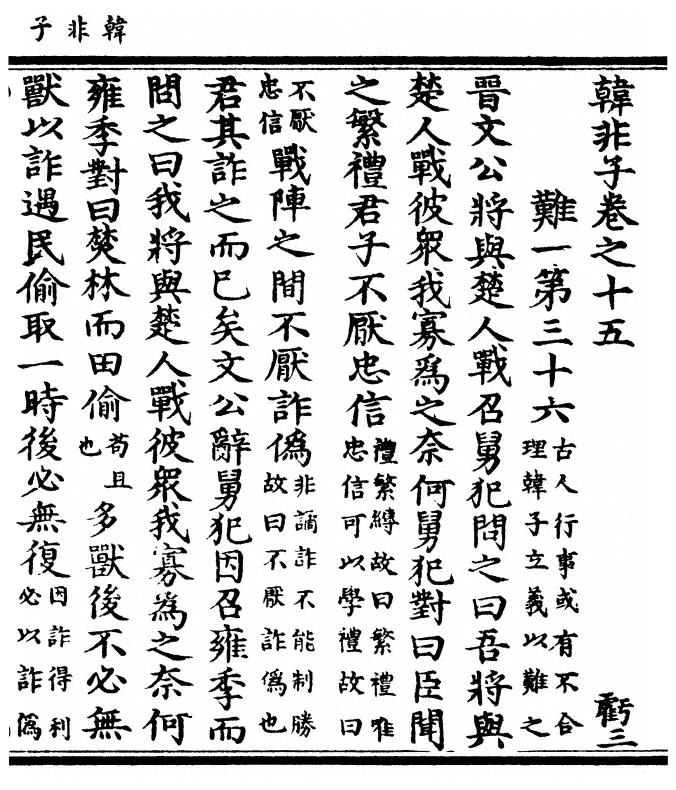 韓非子
韓非子卷之十五 虧三
難一第三十六古人行事或有不合理韓子立義以難之
晉文公將與楚人戰召舅犯問之曰吾將與
楚人戰彼眾我寡爲之奈何舅犯對曰臣聞
之繁禮君子不厭忠信禮繁縟故曰繁禮唯忠信可以學禮故曰
不厭忠信戰陣之間不厭詐僞非譎詐不能制勝故曰不厭詐僞也
君其詐之而已矣文公辭舅犯因召雍季而
問之曰我將與楚人戰彼眾我寡爲之奈何
雍季對曰焚林而田偷苟且也多獸後不必無
獸以詐遇民偷取一時後必無復因詐得利必以詐僞